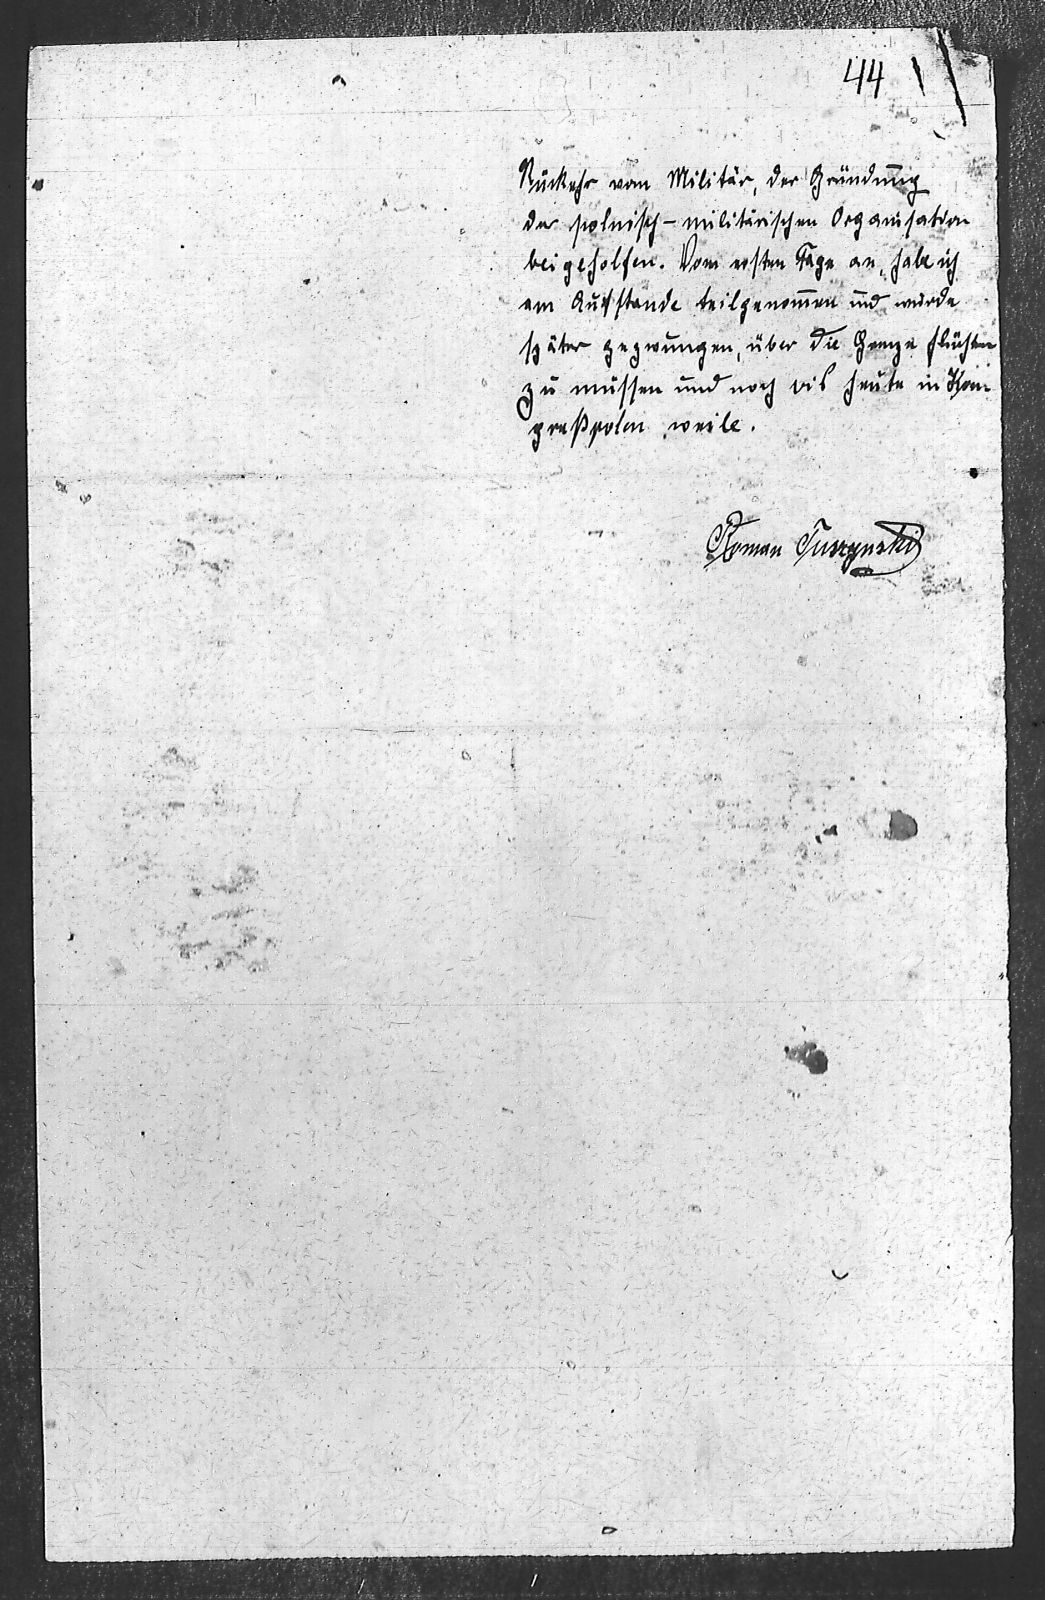 44
Rückehr vom Militär, der Gründung
der polnisch-militärischen Organisation
beigeholfen. Vom ersten Tage an, habe ich
am Aufstande teilgenom̅en und wurde
später gezwungen, über die Grenze flüchten
zu müssen und noch bis heute in Kon-
greßpolen weile.
Roman